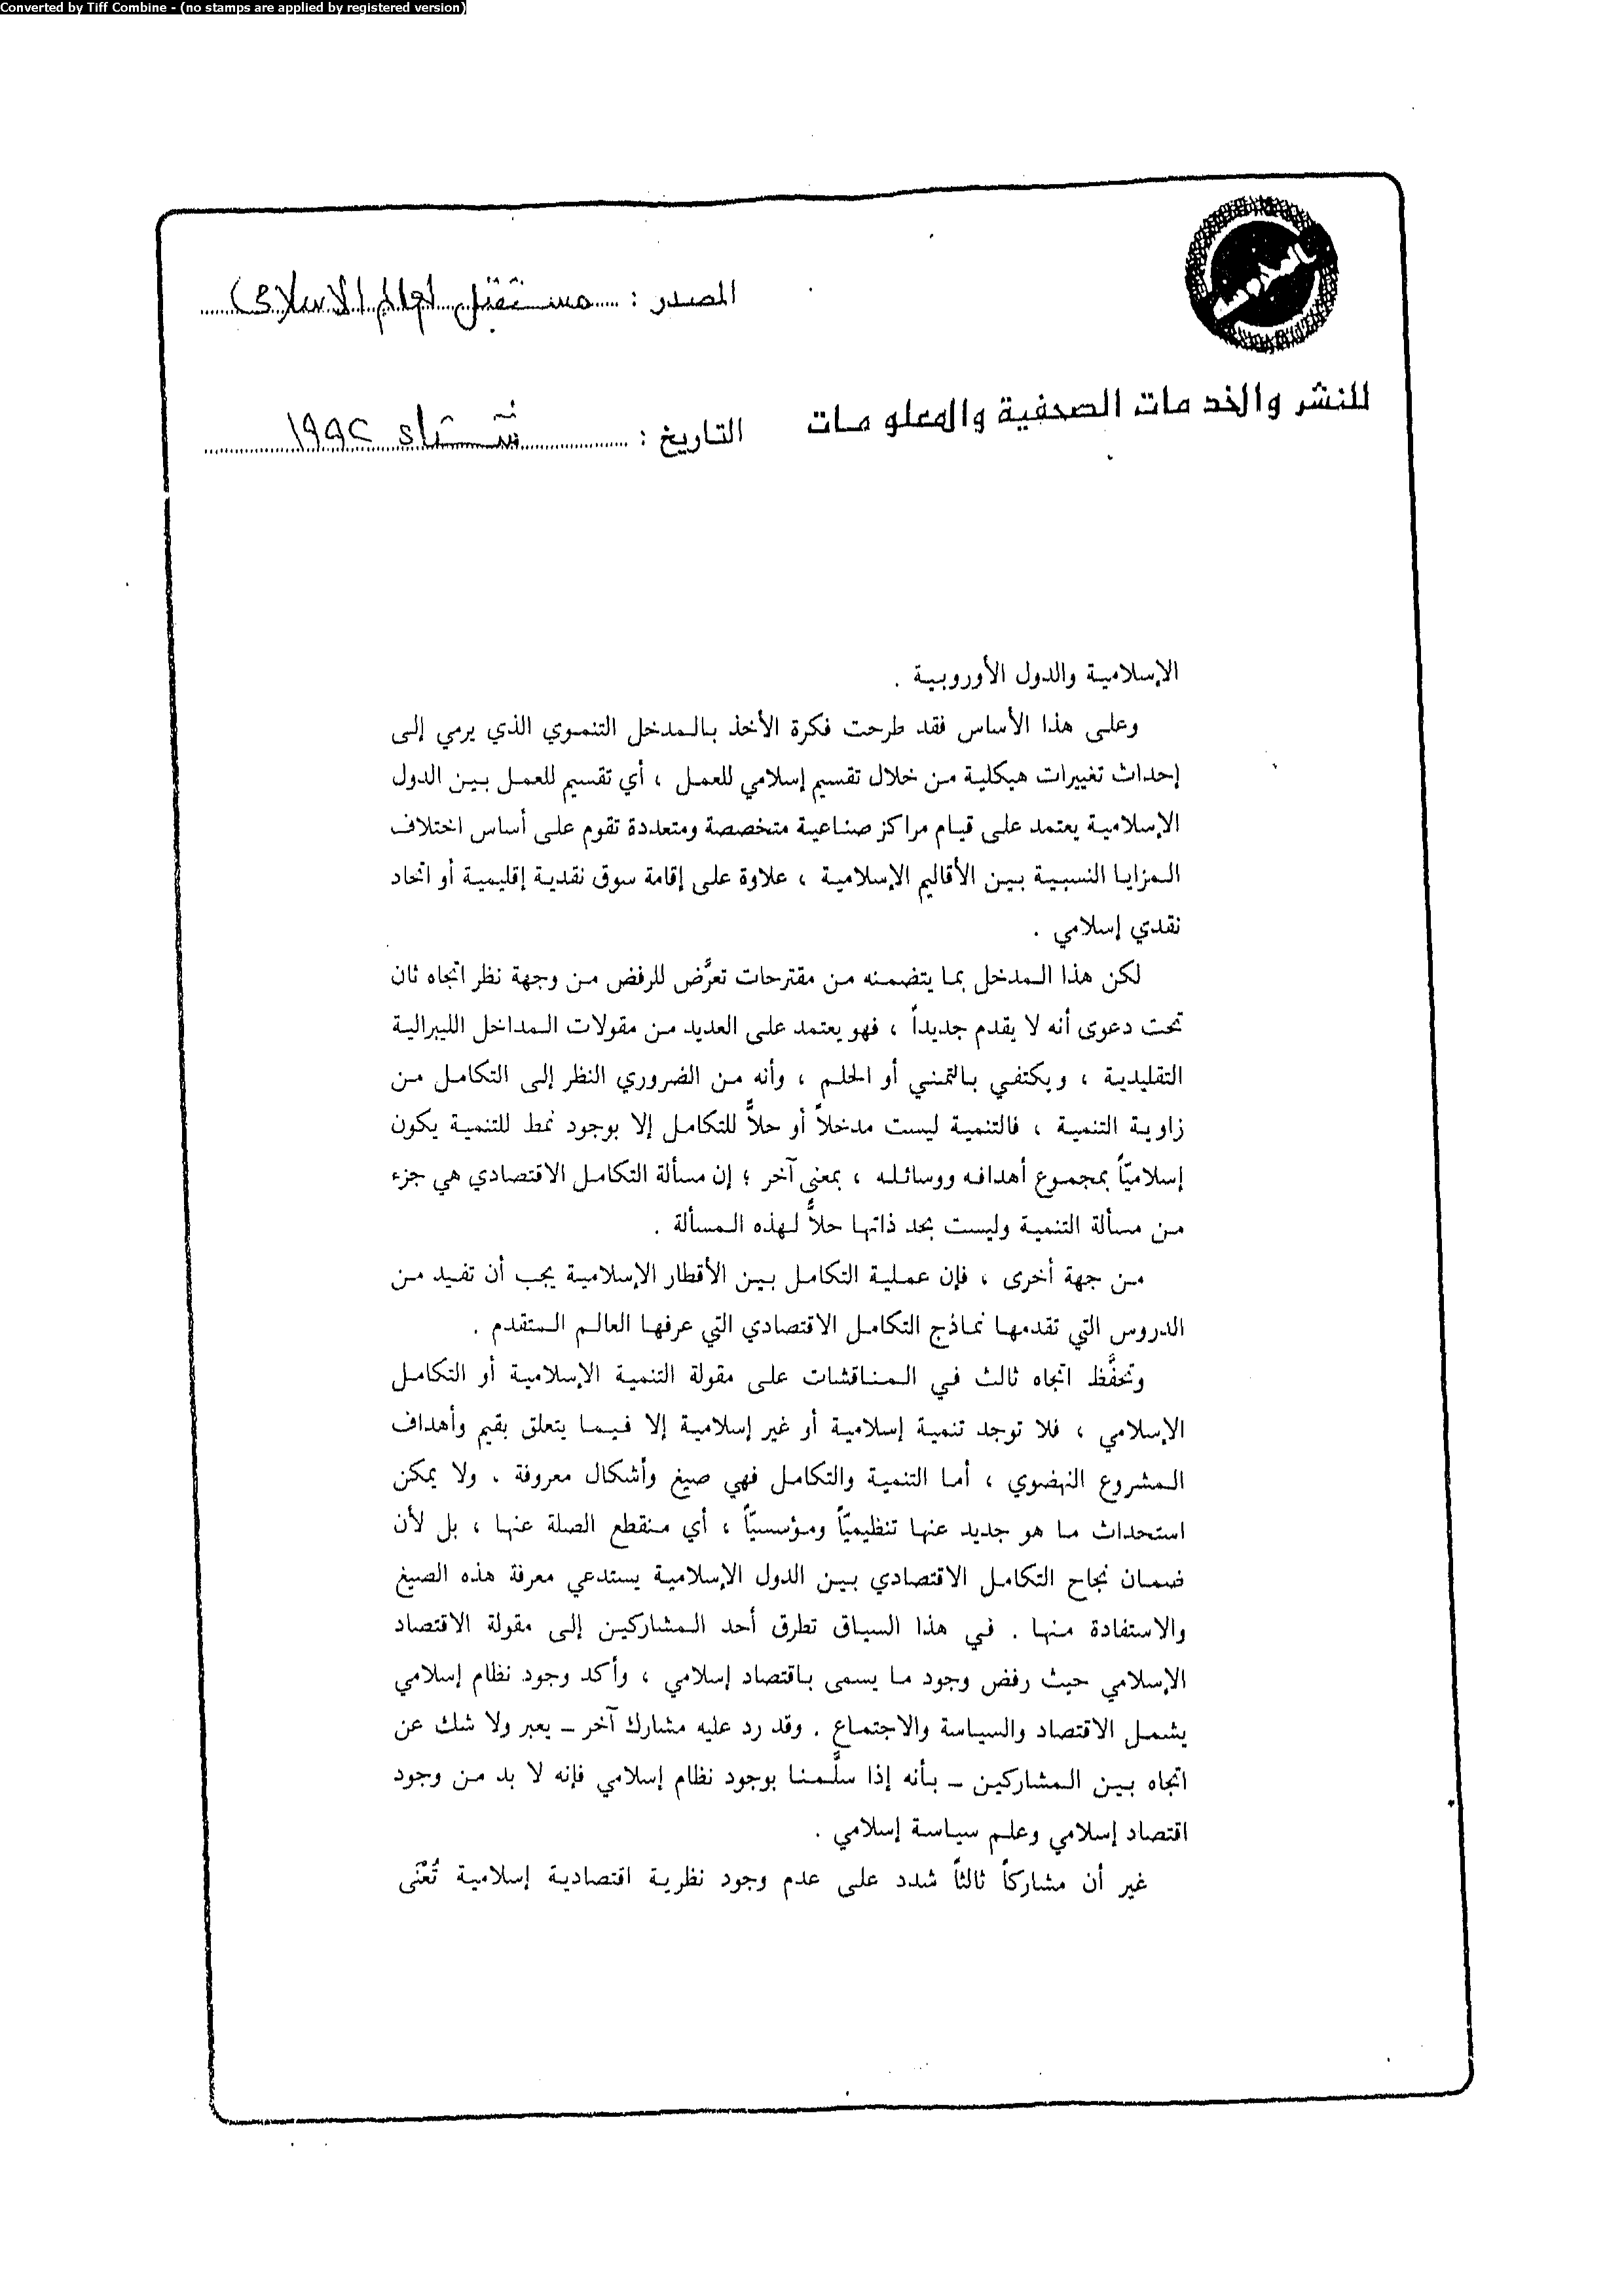 Converted by Tiff Combine - (no stamps are applied by registered version)
المصدر : مستقبل العالم الإسلامى
للنشر والخدمات الصحفية والمعلومات
التاريخ : شتاء ١٩٩٢
الإسلامية والدول الأوروبية .
وعلى هذا الأساس فقد طرحت فكرة الأخذ بالمدخل التنموي الذي يرمي إلى
إحداث تغييرات هيكلية من خلال تقسيم إسلامي للعمل ، أي تقسيم للعمل بين الدول
الإسلامية يعتمد على قيام مراكز صناعية متخصصة ومتعددة تقوم على أساس اختلاف
المزايا النسبية بين الأقاليم الإسلامية ، علاوة على إقامة سوق نقدية إقليمية أو اتحاد
نقدي إسلامي .
لكن هذا المدخل بما يتضمنه من مقترحات تعرَّض للرفض من وجهة نظر اتجاه ثان
تحت دعوى أنه لا يقدم جديداً ، فهو يعتمد على العديد من مقولات المداخل الليبرالية
التقليدية ، ويكتفي بالتمني أو الحلم ، وأنه من الضروري النظر إلى التكامل من
زاوية التنمية ، فالتنمية ليست مدخلاً أو حلاًّ للتكامل إلا بوجود نمط للتنمية يكون
إسلاميّاً بمجموع أهدافه ووسائله ، بمعنى آخر ؛ إن مسألة التكامل الاقتصادي هي جزء
من مسألة التنمية وليست بحد ذاتها حلاًّ لهذه المسألة .
من جهة أخرى ، فإن عملية التكامل بين الأقطار الإسلامية يجب أن تفيد من
الدروس التي تقدمها نماذج التكامل الاقتصادي التي عرفها العالم المتقدم .
وتحفَّظ اتجاه ثالث في المناقشات على مقولة التنمية الإسلامية أو التكامل
الإسلامي ، فلا توجد تنمية إسلامية أو غير إسلامية إلا فيما يتعلق بقيم وأهداف
المشروع النهضوي ، أما التنمية والتكامل فهي صيغ وأشكال معروفة . ولا يمكن
استحداث ما هو جديد عنها تنظيميّاً ومؤسسيّاً ، أي منقطع الصلة عنها ، بل لأن
ضمان نجاح التكامل الاقتصادي بين الدول الإسلامية يستدعي معرفة هذه الصيغ
والاستفادة منها . في هذا السياق تطرق أحد المشاركين إلى مقولة الاقتصاد
الإسلامي حيث رفض وجود ما يسمى باقتصاد إسلامي ، وأكد وجود نظام إسلامي
يشمل الاقتصاد والسياسة والاجتماع . وقد رد عليه مشارك آخر – يعبر ولا شك عن
اتجاه بين المشاركين – بأنه إذا سلَّمنا بوجود نظام إسلامي فإنه لا بد من وجود
اقتصاد إسلامي وعلم سياسة إسلامي .
غير أن مشاركاً ثالثاً شدد على عدم وجود نظرية اقتصادية إسلامية تُعْنَى